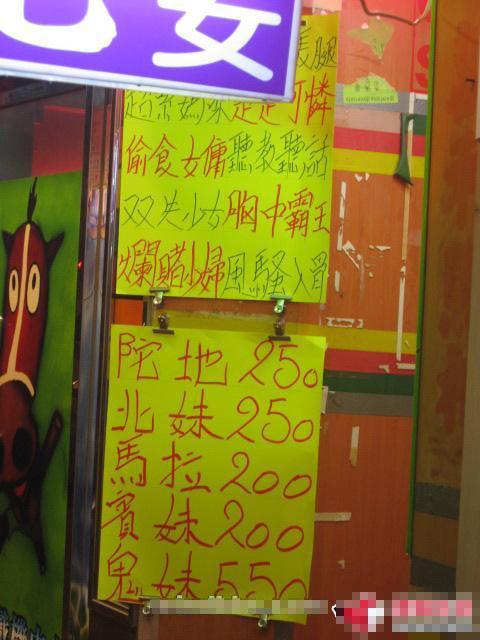 長腿
楚楚可憐
偷食女傭聽教聽話
双失少女胸中霸王
爛賭少婦風騷入骨
陀地250
北妹250
馬拉200
賓妹200
鬼妹550